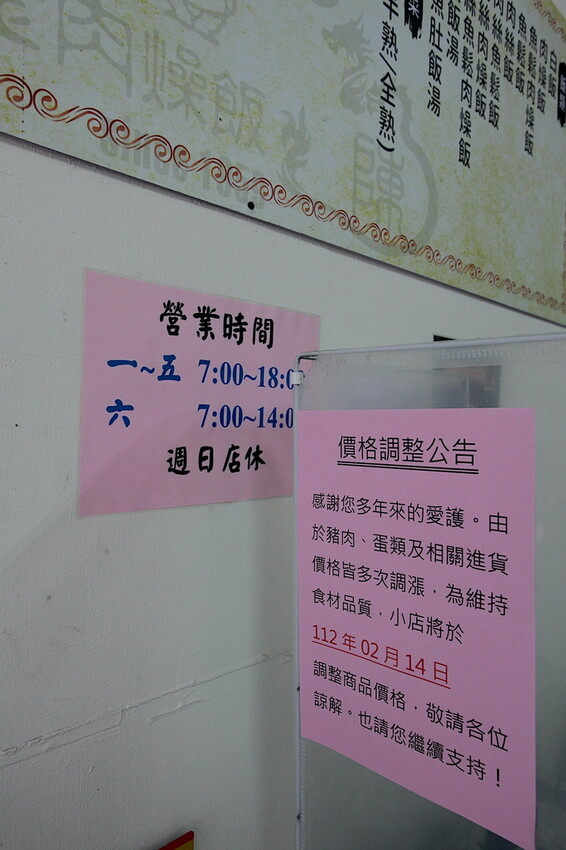 白飯
肉燥飯
魚鬆飯
肉絲飯
魚鬆肉燥飯
肉絲肉燥飯
絲魚鬆飯
絲魚鬆肉燥飯
飯湯
魚肚飯湯
半熟/全熟)
肉燥飯
營業時間
一~五 7:00~18:0
六 7:00~14:0
週日店休
價格調整公告
感謝您多年來的愛護。由
於豬肉、蛋類及相關進貨
價格皆多次調漲，為維持
食材品質，小店將於
112 年 02 月 14 日
調整商品價格，敬請各位
諒解。也請您繼續支持！